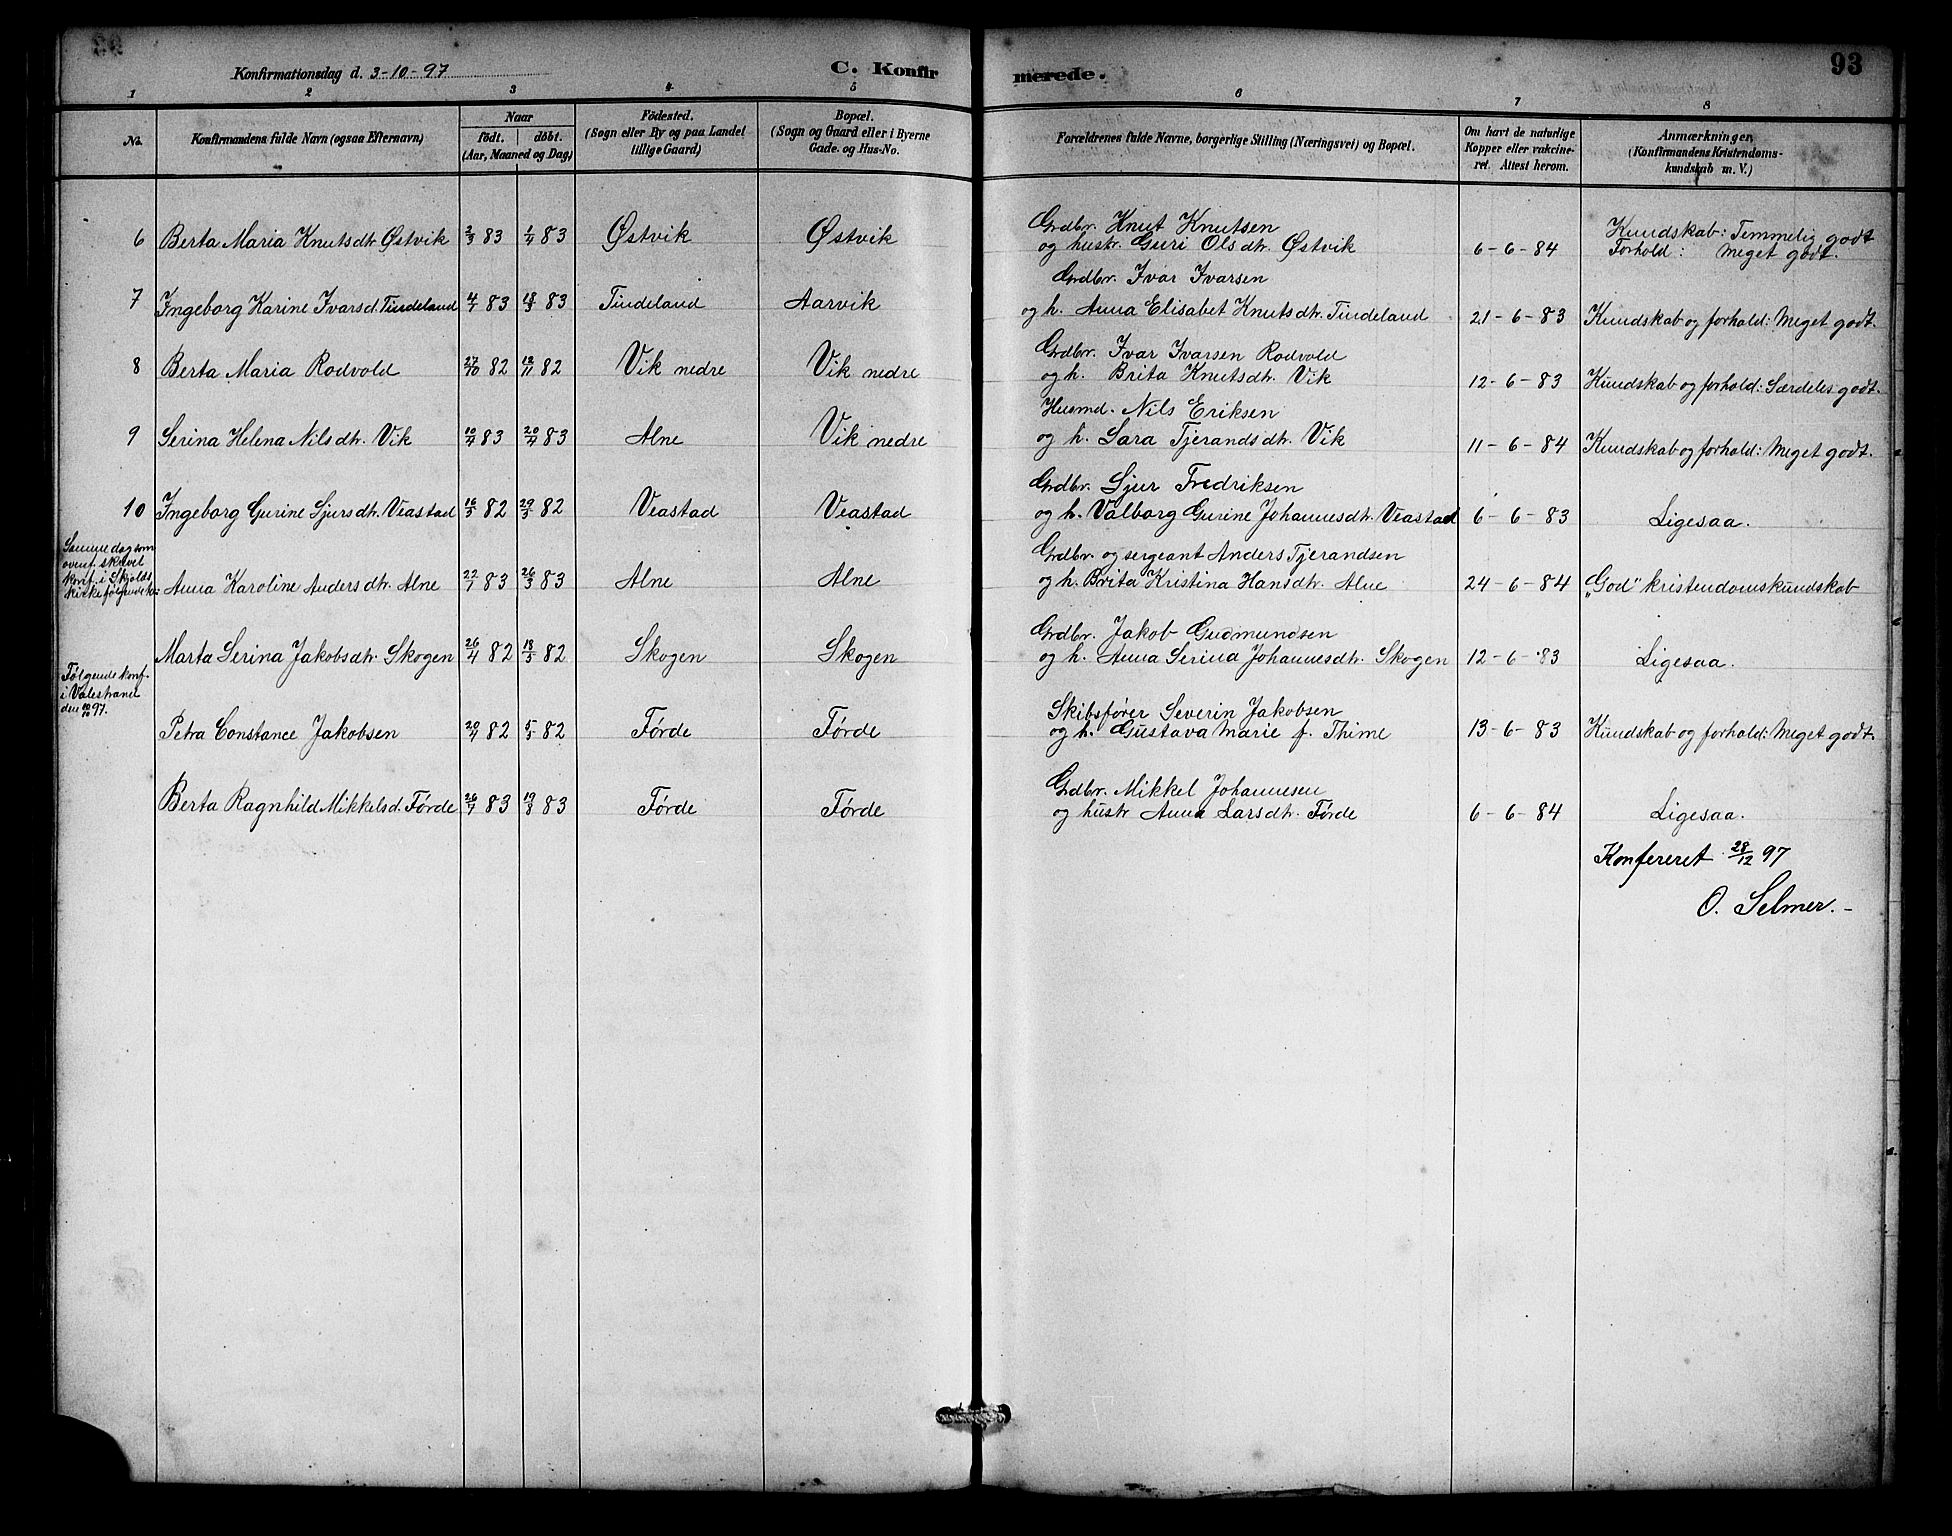 Konfirmationsdag d. 3-10-97
C. Konfirmerede.
93
1 2 3 4 5 6 7 8
No.
Konfirmandens fulde Navn (ogsaa Efternavn)
Naar
født. døbt.
(Aar, Maaned og Dag)
Fødested.
(Sogn eller By og paa Landet
tillige Gaard)
Bopæl.
(Sogn og Gaard eller i Byerne
Gade. og Hus-No.
Forældrenes fulde Navne, borgerlige Stilling (Næringsvei) og Bopæl.
Om havt de naturlige
Kopper eller vakcine-
ret. Attest herom.
Anmærkninger,
(Konfirmandens Kristendoms-
kundskab m. V.)
6 Berta Maria Knutsdtr. Østvik 2/3 83 1/4 83 Østvik Østvik
Grdbr. Knut Knutsen
og hustr. Guri Olsdtr. Østvik 6-6-84
Kundskab: Temmelig godt
Forhold: Meget godt.
7 Ingeborg Karine Ivarsd. Tindeland 83 83 Tindeland Aarvik
Grdbr. Ivar Ivarsen
og h. Anna Elisabet Knutsdtr. Tindeland 21-6-83 Kundskab og forhold: Meget godt.
8 Berta Maria Rodvold 27/10 82 82 Vik nedre Vik nedre
Grdbr. Ivar Ivarsen Rodvold
og h. Brita Knutsdtr. Vik 12-6-83 Kundskab og forhold: Særdeles godt.
9 Serina Helena Nilsdtr. Vik 83 83 Alne Vik nedre
Husmd. Nils Eriksen
og h. Sara Tjerandsdtr. Vik 11-6-84 Kundskab og forhold: Meget godt.
10 Ingeborg Gurine Sjursdtr. Veastad 16/3 82 29/3 82 Veastad Veastad
Grdbr. Sjur Fredriksen
og h. Valborg Gurine Johannesdtr. Veastad 6-6-83 Ligesaa.
Samme dag som
ovenf. skrevet
konf. i Skjolds
kirke følgende to:
Anna Karoline Andersdtr. Alne 22/1 83 26/3 83 Alne Alne
Grdbr. og sergeant Anders Tjerandsen
og h. Brita Kristina Hansdtr. Alne 24-6-84 „God" kristendomskundskab
Marta Serina Jakobsdtr. Skogen 26/4 82 18/5 82 Skogen Skogen
Grdbr. Jakob Gudmundsen
og h. Anna Serina Johannesdtr. Skogen 12-6-83 Ligesaa.
Følgende konf.
i Valestrand
den 97.
Petra Constance Jakobsen 82 82 Førde Førde
Skibsfører Severin Jakobsen
og h. Gustava Marie f. Thime 13-6-83 Kundskab og forhold: Meget godt.
Berta Ragnhild Mikkelsd. Førde 26/7 83 19/8 83 Førde Førde
Grdbr. Mikkel Johannesen
og hustr Anna Larsdtr. Førde 6-6-84 Ligesaa.
Konfereret 28/12 97
O. Selmer.-